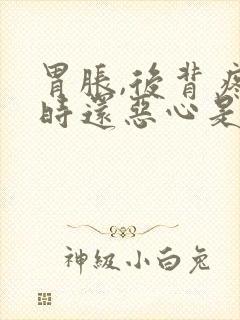 胃脹,後背疼
時還惡心是
神級小白兔